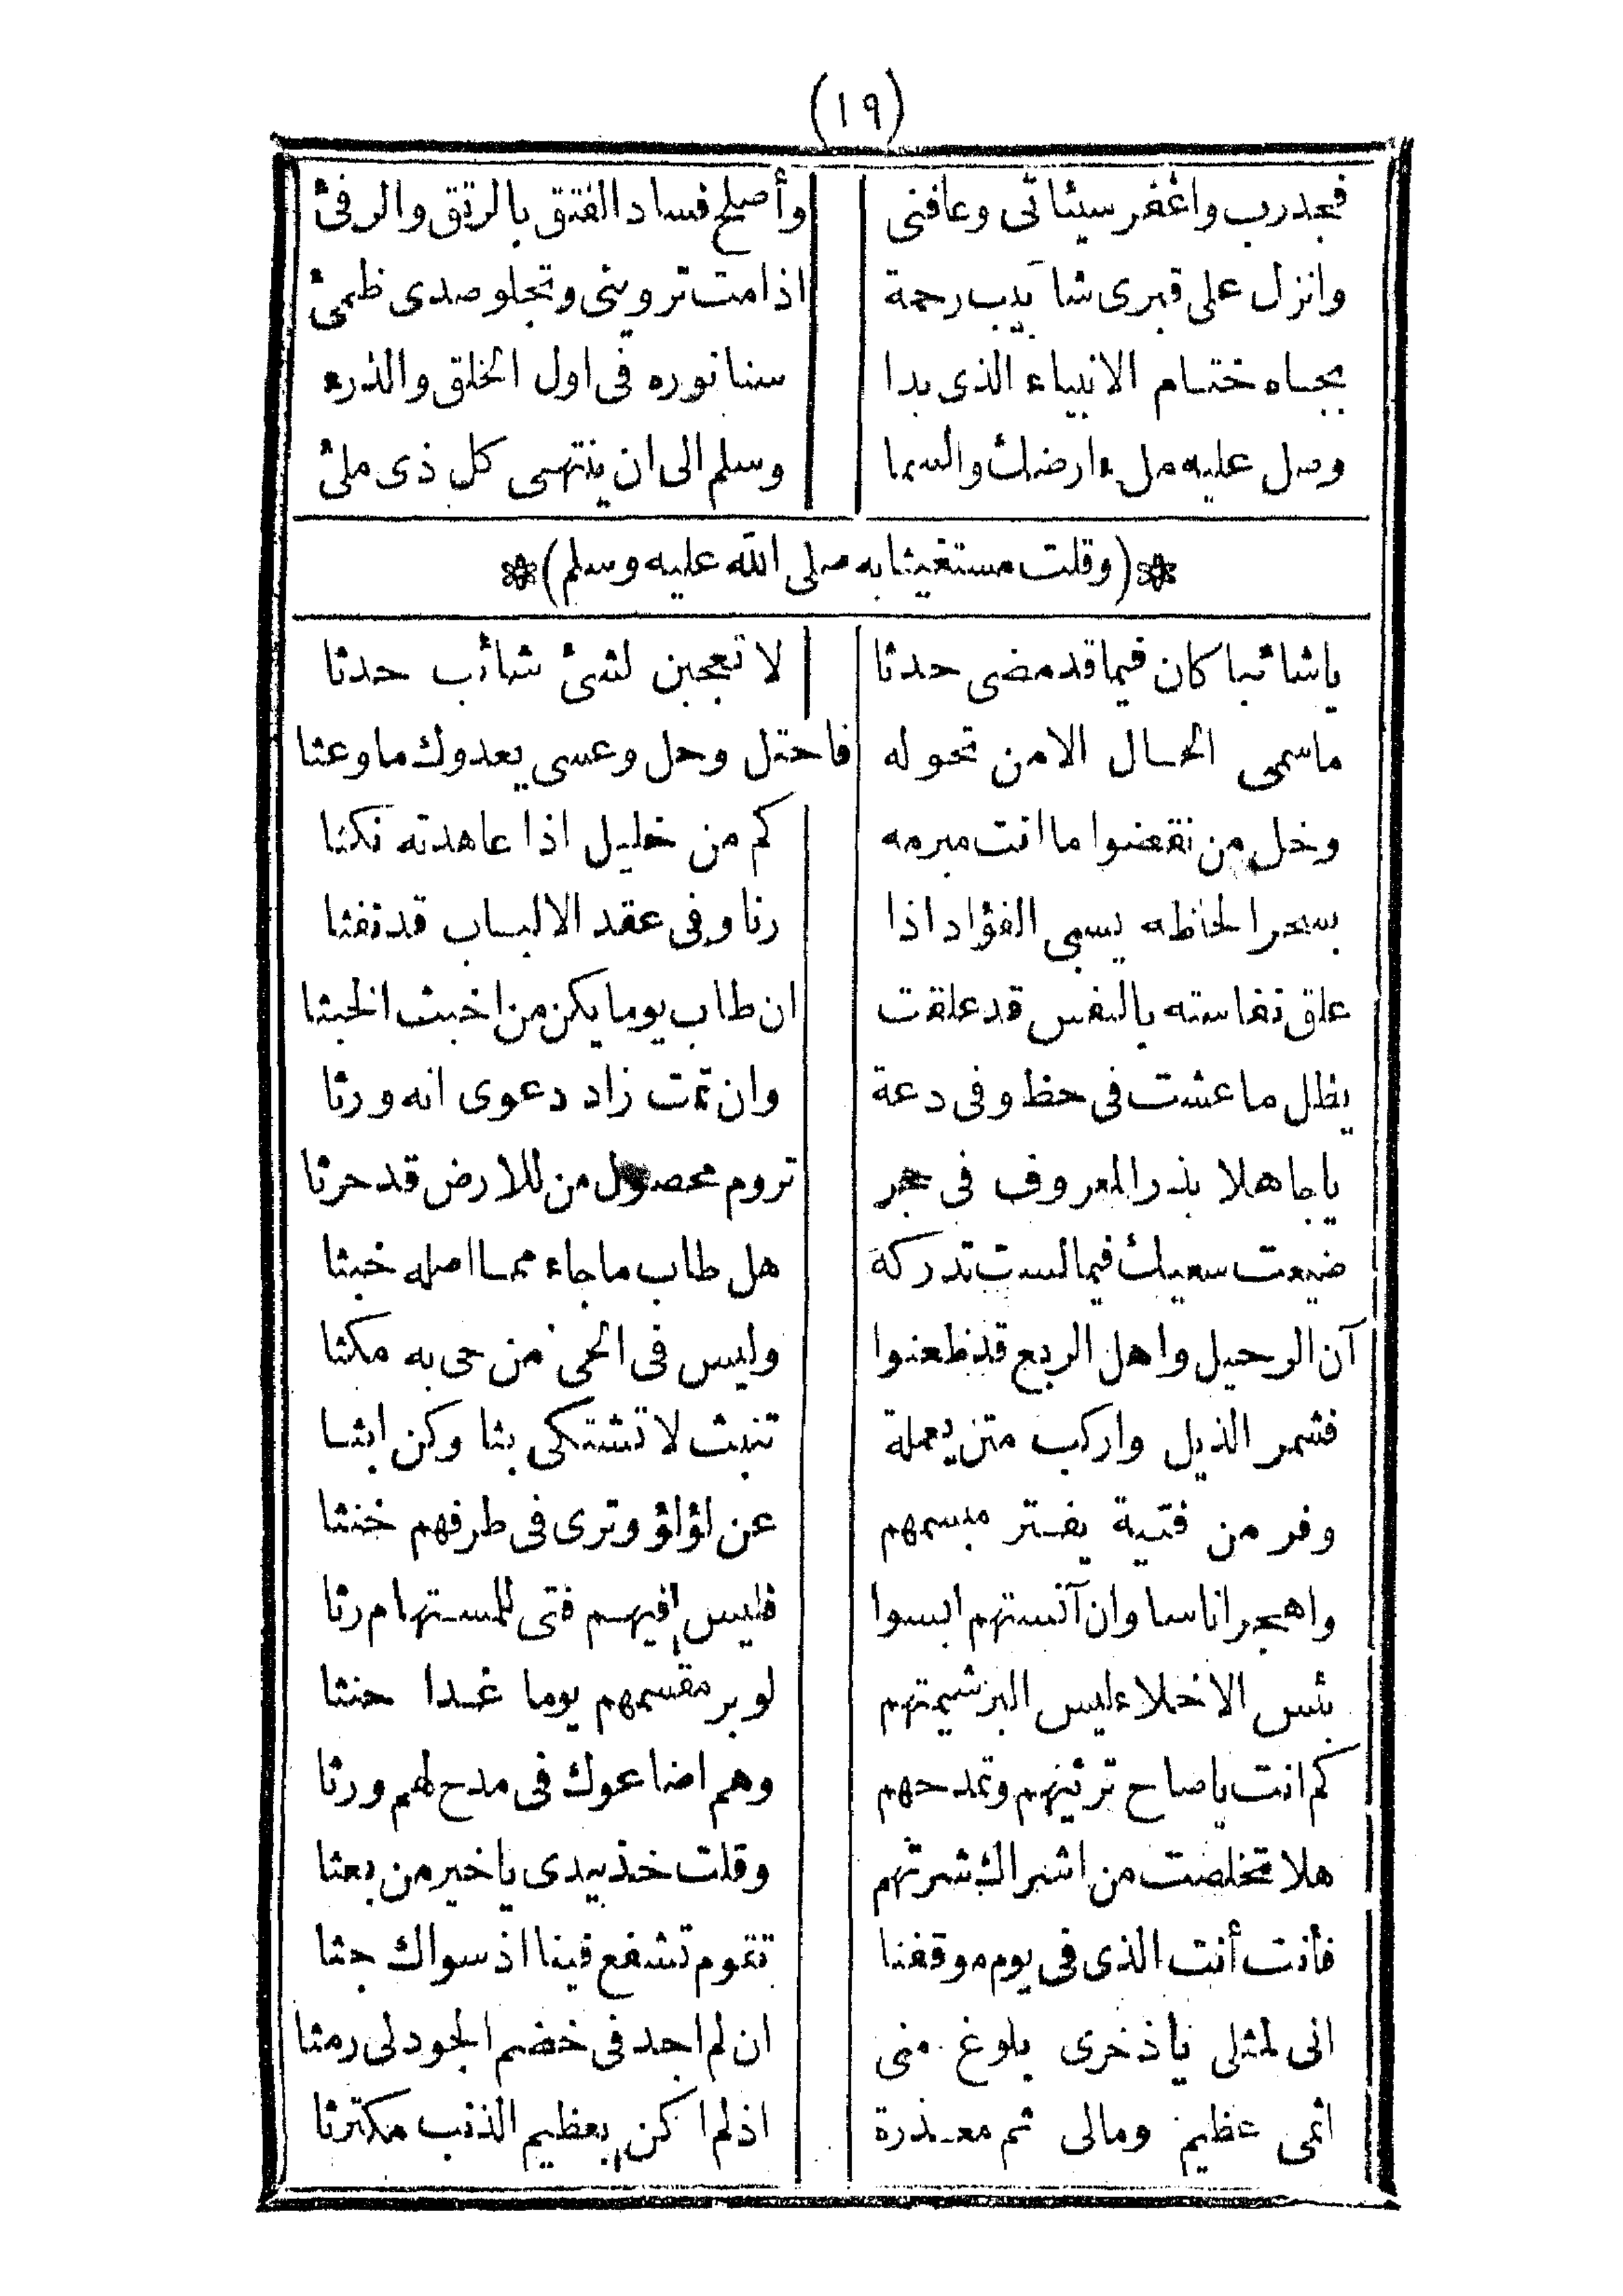 (١٩)
فجد رب واغفر سيئاتى وعافنى وأصلح فساد الفتق بالرتق والرفئ
وانزل على قبرى شآ بيب رحمة اذا مت تروينى وتجلو صدى ظمئ
بجاه ختام الانبياء الذى بدا سنا نوره فى اول الخلق والذرء
وصل عليه ملء ارضك والسما وسلم الى ان ينتهى كل ذى ملئ
(وقلت مستغيثا به صلى الله عليه وسلم)
يا شائبا كان فيما قد مضى حدثا لا تعجبن لشئ شائب حدثا
ما سمى الحال الا من تحوله فاحتل وحل وعسى يعدوك ما وعثا
وخل من نقضوا ما انت مبرمه كم من خليل اذا عاهدته نكثا
بسحر الحاظه يسبى الفؤاد اذا رنا وفى عقد الالباب قد نفثا
علق نفاسته بالنفس قد علقت ان طاب يوما يكن من اخبث الخبثا
يظل ما عشت فى حظ وفى دعة وان تمت زاد دعوى انه ورثا
يا جاهلا بذر المعروف فى حجر تروم محصول من للارض قد حرثا
ضيعت سعيك فيما لست تدركه هل طاب ما جاء مما اصله خبثا
آن الرحيل واهل الربع قد ظعنوا وليس فى الحى من حى به مكثا
فشمر الذيل واركب متن يعملة تنبث لا تشتكى بثا وكن ابثا
وفر من فتية يفتر مبسمهم عن لؤلؤ وترى فى طرفهم خنثا
واهجر اناسا وان آنستهم ابسوا فليس فيهم فتى للمستهام رثا
بئس الاخلاء ليس البر شيمتهم لو بر مقسمهم يوما غدا حنثا
كم انت يا صاح ترثيهم وتمدحهم وهم اضاعوك فى مدح لهم ورثا
هلا تخلصت من اشراك شرتهم وقلت خذ بيدى يا خير من بعثا
فأنت أنت الذى فى يوم موقفنا تقوم تشفع فينا اذ سواك جثا
انى لمثلى يا ذخرى بلوغ منى ان لم اجد فى خضم الجود لى رمثا
اثمى عظيم ومالى ثم معذرة اذ لم اكن بعظيم الذنب مكترثا